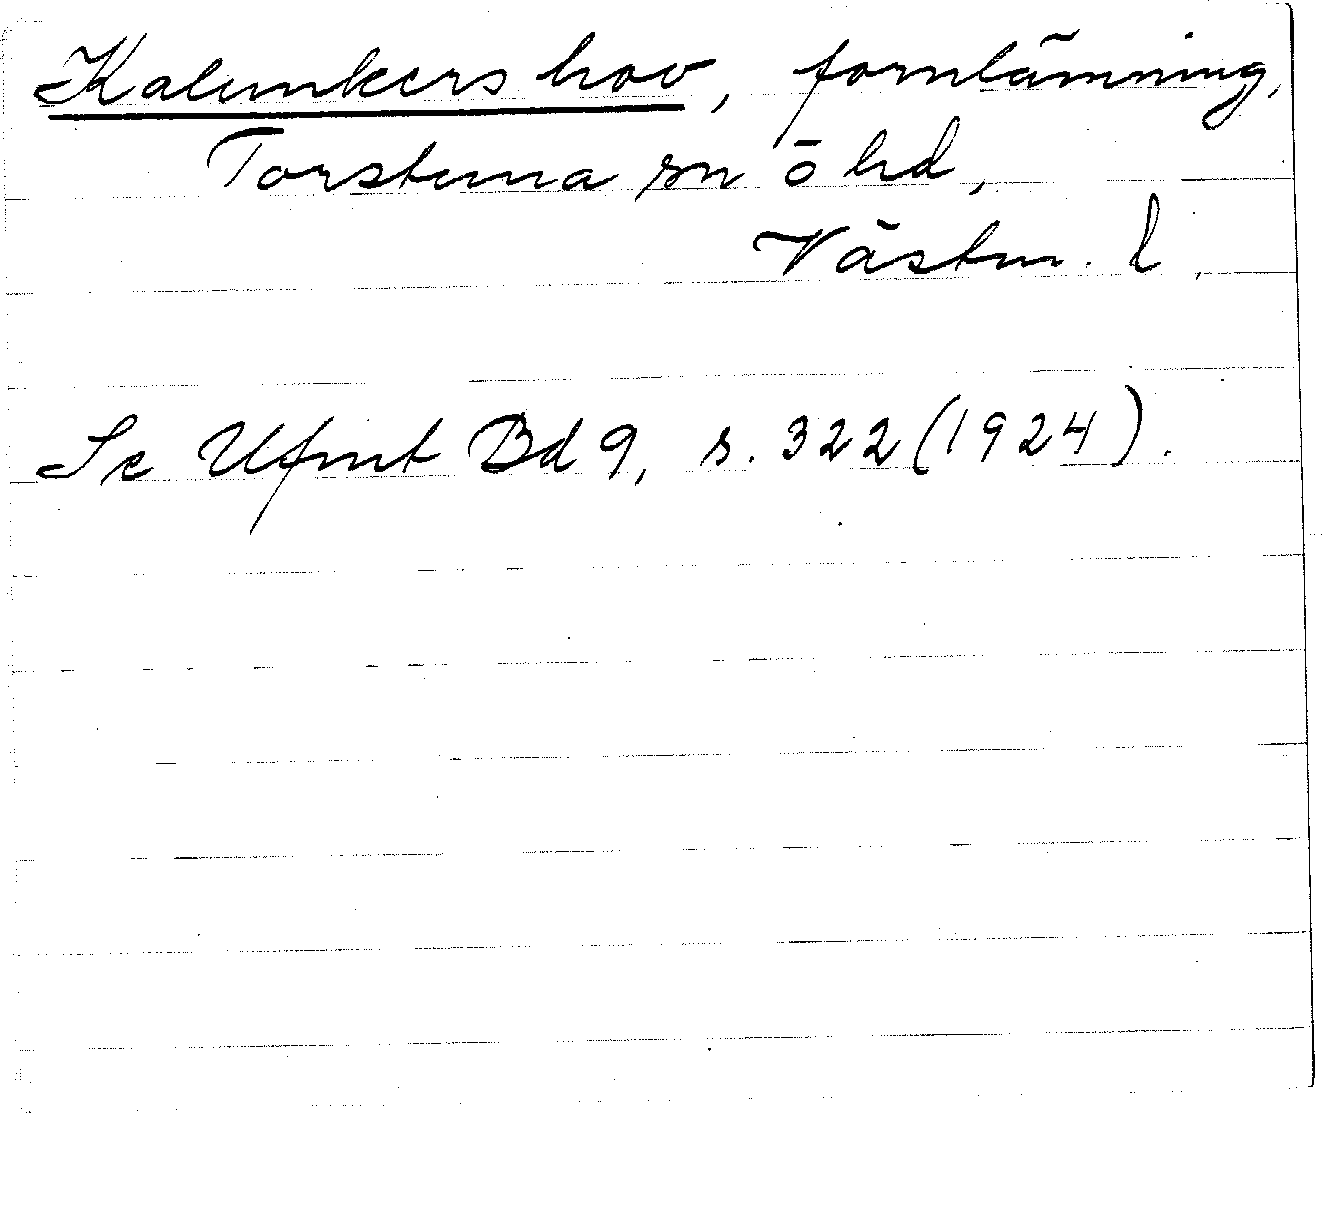 Kalunkers hov, fornlämning,
Torstuna sn ö hd,
Västm. l.
Se Ufmt Bd 9, s. 322 (1924).